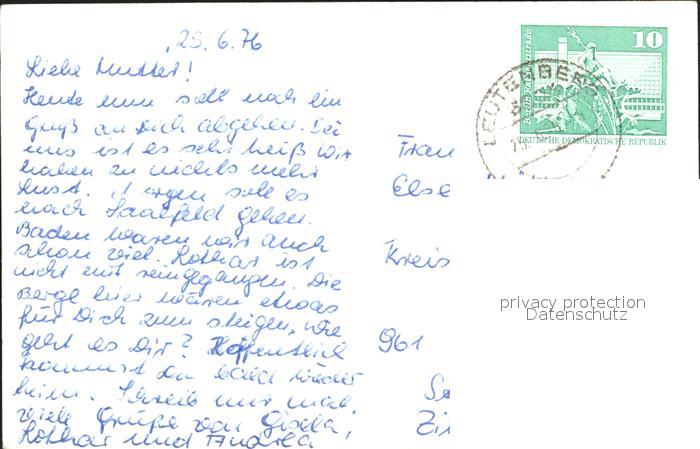 25.6.76
Liebe Mutter!
Heute nun soll noch ein
Gruß an Dich abgehen. Bei
uns ist es sehr heiß wir
haben zu nichts mehr
Lust. Morgen soll es
nach Saalfeld gehen.
Baden waren wir auch
schon viel. Lothar ist
nicht mit reingegangen. Die
Berge hier wären etwas
für Dich zum steigen. Wie
geht es Dir? Hoffentlich
kommst du bald wieder
heim. Schreib mir mal.
Viele Grüße von Gisela,
Lothar und
10
Berlin Rathausstraße
DEUTSCHE DEMOKRATISCHE REPUBLIK
LEUTENBERG
Frau
Else
Kreis
961
privacy protection
Datenschutz